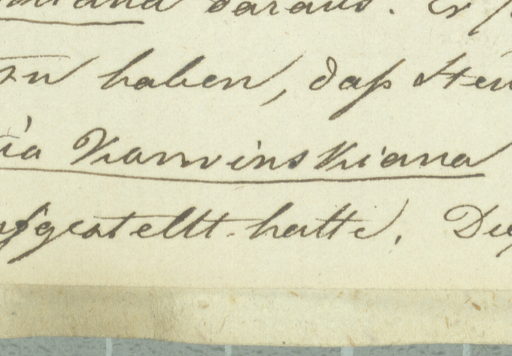 daraus. Er
zu haben, daß Steu
ia Karwinskiana
aufgestellt hatte. Die